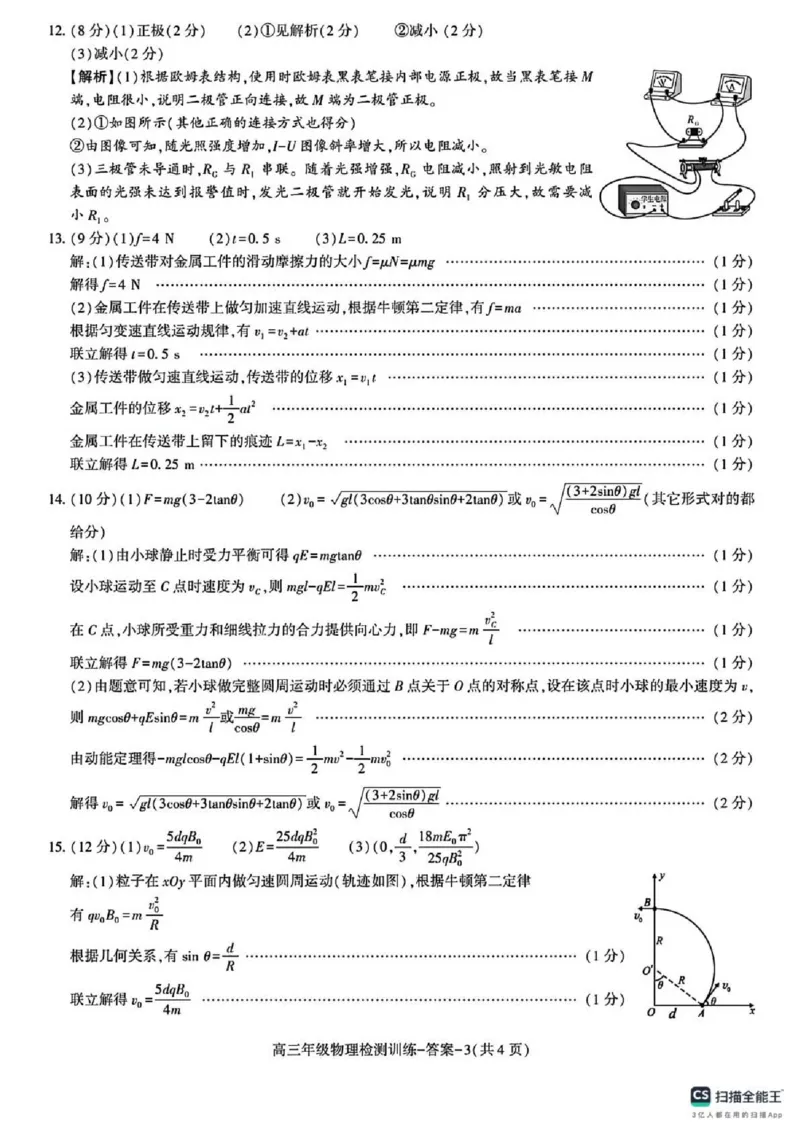 12. (8分)(1)正极(2分) (2)①见解析(2分) ②减小 (2分)
(3)减小(2分)
【解析】(1)根据欧姆表结构,使用时欧姆表黑表笔接内部电源正极,故当黑表笔接 M
端,电阻很小,说明二极管正向连接,故 M 端为二极管正极。
(2)①如图所示(其他正确的连接方式也得分)
②由图像可知,随光照强度增加,I-U 图像斜率增大,所以电阻减小。
(3)三极管未导通时,R_G 与 R₁ 串联。随着光强增强,R_G 电阻减小,照射到光敏电阻
表面的光强未达到报警值时,发光二极管就开始发光,说明 R₁ 分压大,故需要减
小 R₁。
R_G
学生电源
13. (9分)(1)f=4 N (2)t=0.5 s (3)L=0.25 m
解:(1)传送带对金属工件的滑动摩擦力的大小 f=μN=μmg ………… (1分)
解得 f=4 N ………… (1分)
(2)金属工件在传送带上做匀加速直线运动,根据牛顿第二定律,有 f=ma ………… (1分)
根据匀变速直线运动规律,有 v₁=v₂+at ………… (1分)
联立解得 t=0.5 s ………… (1分)
(3)传送带做匀速直线运动,传送带的位移 x₁=v₁t ………… (1分)
金属工件的位移 x₂=v₂t+1/2 at² ………… (1分)
金属工件在传送带上留下的痕迹 L=x₁-x₂ ………… (1分)
联立解得 L=0.25 m ………… (1分)
14. (10分)(1)F=mg(3-2tanθ) (2)v₀=√gl(3cosθ+3tanθsinθ+2tanθ) 或 v₀=√((3+2sinθ)gl/cosθ) (其它形式对的都
给分)
解:(1)由小球静止时受力平衡可得 qE=mgtanθ ………… (1分)
设小球运动至 C 点时速度为 v_C,则 mgl-qEl=1/2 mv_C² ………… (1分)
在 C 点,小球所受重力和细线拉力的合力提供向心力,即 F-mg=m v_C²/l ………… (1分)
联立解得 F=mg(3-2tanθ) ………… (1分)
(2)由题意可知,若小球做完整圆周运动时必须通过 B 点关于 O 点的对称点,设在该点时小球的最小速度为 v,
则 mgcosθ+qEsinθ=m v²/l 或 mg/cosθ=m v²/l ………… (2分)
由动能定理得-mglcosθ-qEl(1+sinθ)=1/2 mv²-1/2 mv₀² ………… (2分)
解得 v₀=√gl(3cosθ+3tanθsinθ+2tanθ) 或 v₀=√((3+2sinθ)gl/cosθ) ………… (2分)
15. (12分)(1)v₀=5dqB₀/4m (2)E=25dqB₀²/4m (3)(0, d/3, 18mE₀π²/25qB₀²)
解:(1)粒子在 xOy 平面内做匀速圆周运动(轨迹如图),根据牛顿第二定律
有 qv₀B₀=m v₀²/R
根据几何关系,有 sin θ=d/R ………… (1分)
联立解得 v₀=5dqB₀/4m ………… (1分)
y
B
v₀
R
O′
θ
R
v₀
θ
O d A x
高三年级物理检测训练-答案-3(共4页)
CS 扫描全能王
3亿人都在用的扫描App